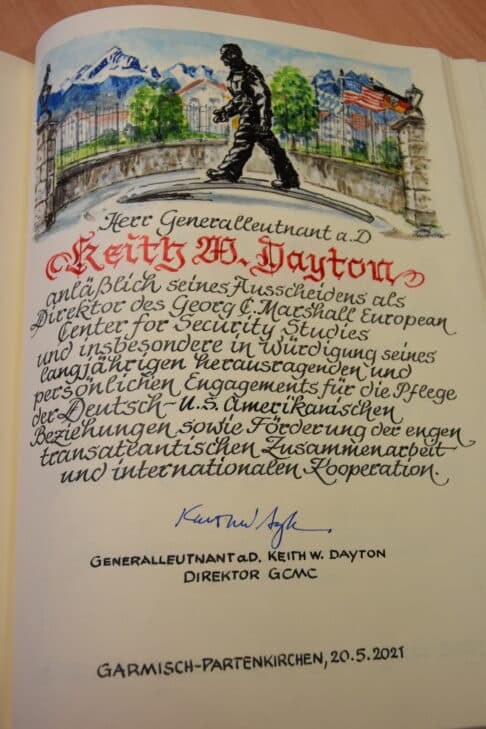 Herr Generalleutnant a.D
Keith W. Dayton
anläßlich seines Ausscheidens als
Direktor des Georg C. Marshall European
Center for Security Studies
und insbesondere in Würdigung seines
langjährigen herausragenden und
persönlichen Engagements für die Pflege
der Deutsch-U.S. Amerikanischen
Beziehungen sowie Förderung der engen
transatlantischen Zusammenarbeit
und internationalen Kooperation.
GENERALLEUTNANT a.D. KEITH W. DAYTON
DIREKTOR GCMC
GARMISCH-PARTENKIRCHEN, 20.5.2021